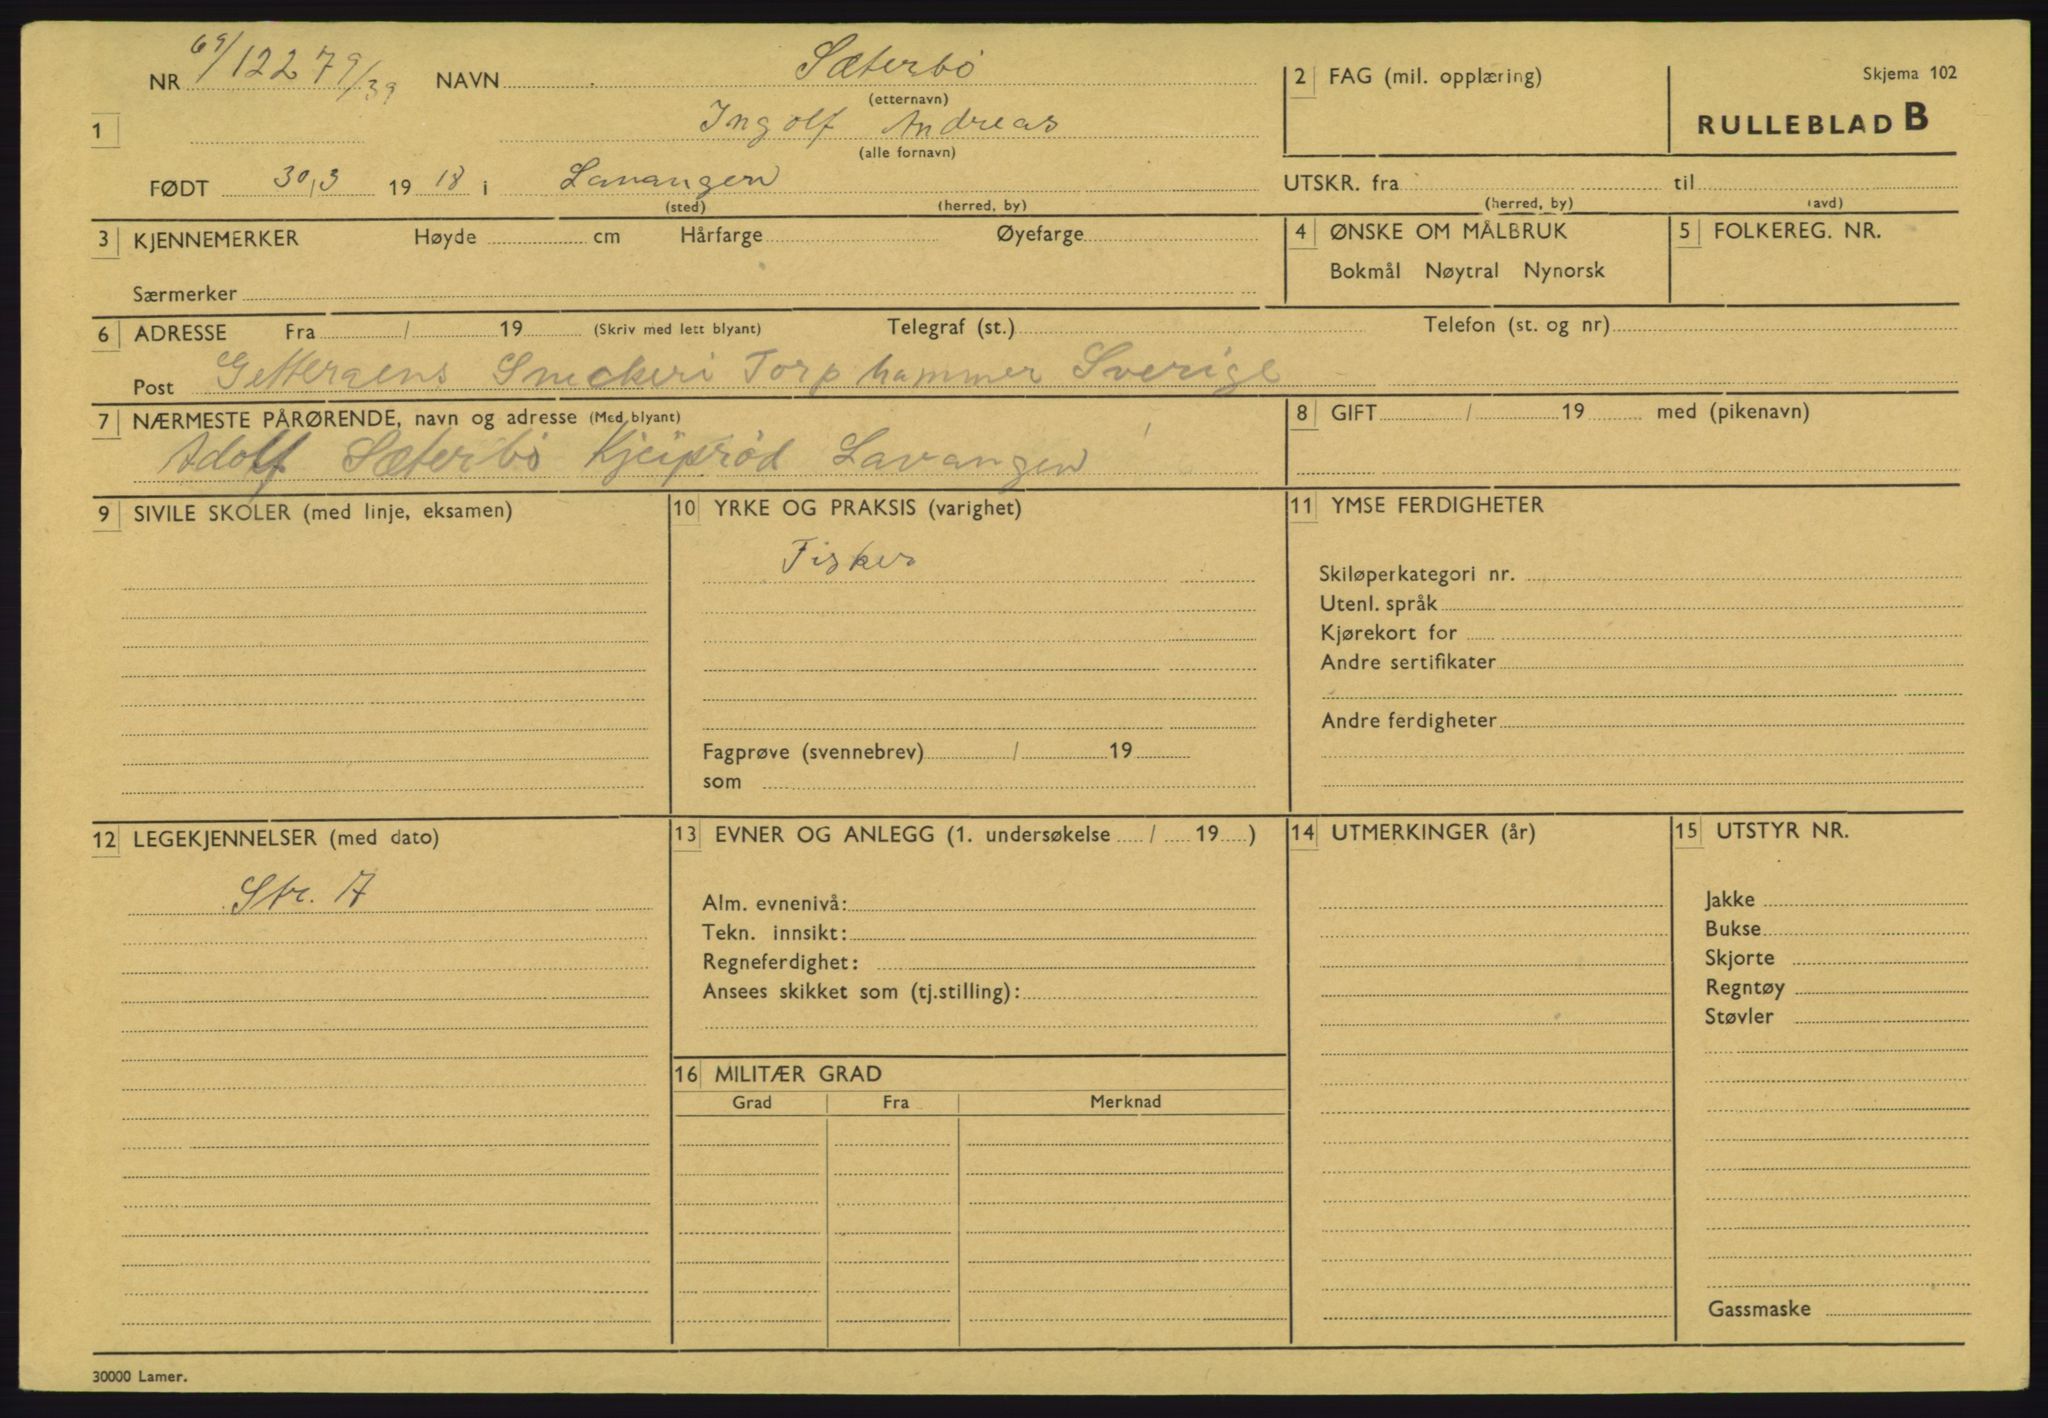 NR 69/12279/39 NAVN Sæterbö (etternavn)
1 Ingolf Andreas (alle fornavn)
FØDT 30/3 1918 i Lavangen (sted) (herred, by)
2 FAG (mil. opplæring)
Skjema 102
RULLEBLAD B
UTSKR. fra (herred, by) til (avd)
3 KJENNEMERKER Høyde cm Hårfarge Øyefarge
Særmerker
4 ØNSKE OM MÅLBRUK
Bokmål Nøytral Nynorsk
5 FOLKEREG. NR.
6 ADRESSE Fra / 19 (Skriv med lett blyant) Telegraf (st.) Telefon (st. og nr)
Post Snickeri Torphammer Sverige
7 NÆRMESTE PÅRØRENDE, navn og adresse (Med blyant)
Adolf Sæterbö Kjeipröd Lavangen
8 GIFT / 19 med (pikenavn)
9 SIVILE SKOLER (med linje, eksamen)
10 YRKE OG PRAKSIS (varighet)
Fisker
Fagprøve (svennebrev) / 19
som
11 YMSE FERDIGHETER
Skiløperkategori nr.
Utenl. språk
Kjørekort for
Andre sertifikater
Andre ferdigheter
12 LEGEKJENNELSER (med dato)
Str. A
13 EVNER OG ANLEGG (1. undersøkelse / 19 )
Alm. evnenivå:
Tekn. innsikt:
Regneferdighet:
Ansees skikket som (tj.stilling):
14 UTMERKINGER (år)
15 UTSTYR NR.
Jakke
Bukse
Skjorte
Regntøy
Støvler
Gassmaske
16 MILITÆR GRAD
Grad Fra Merknad
30000 Lamer.